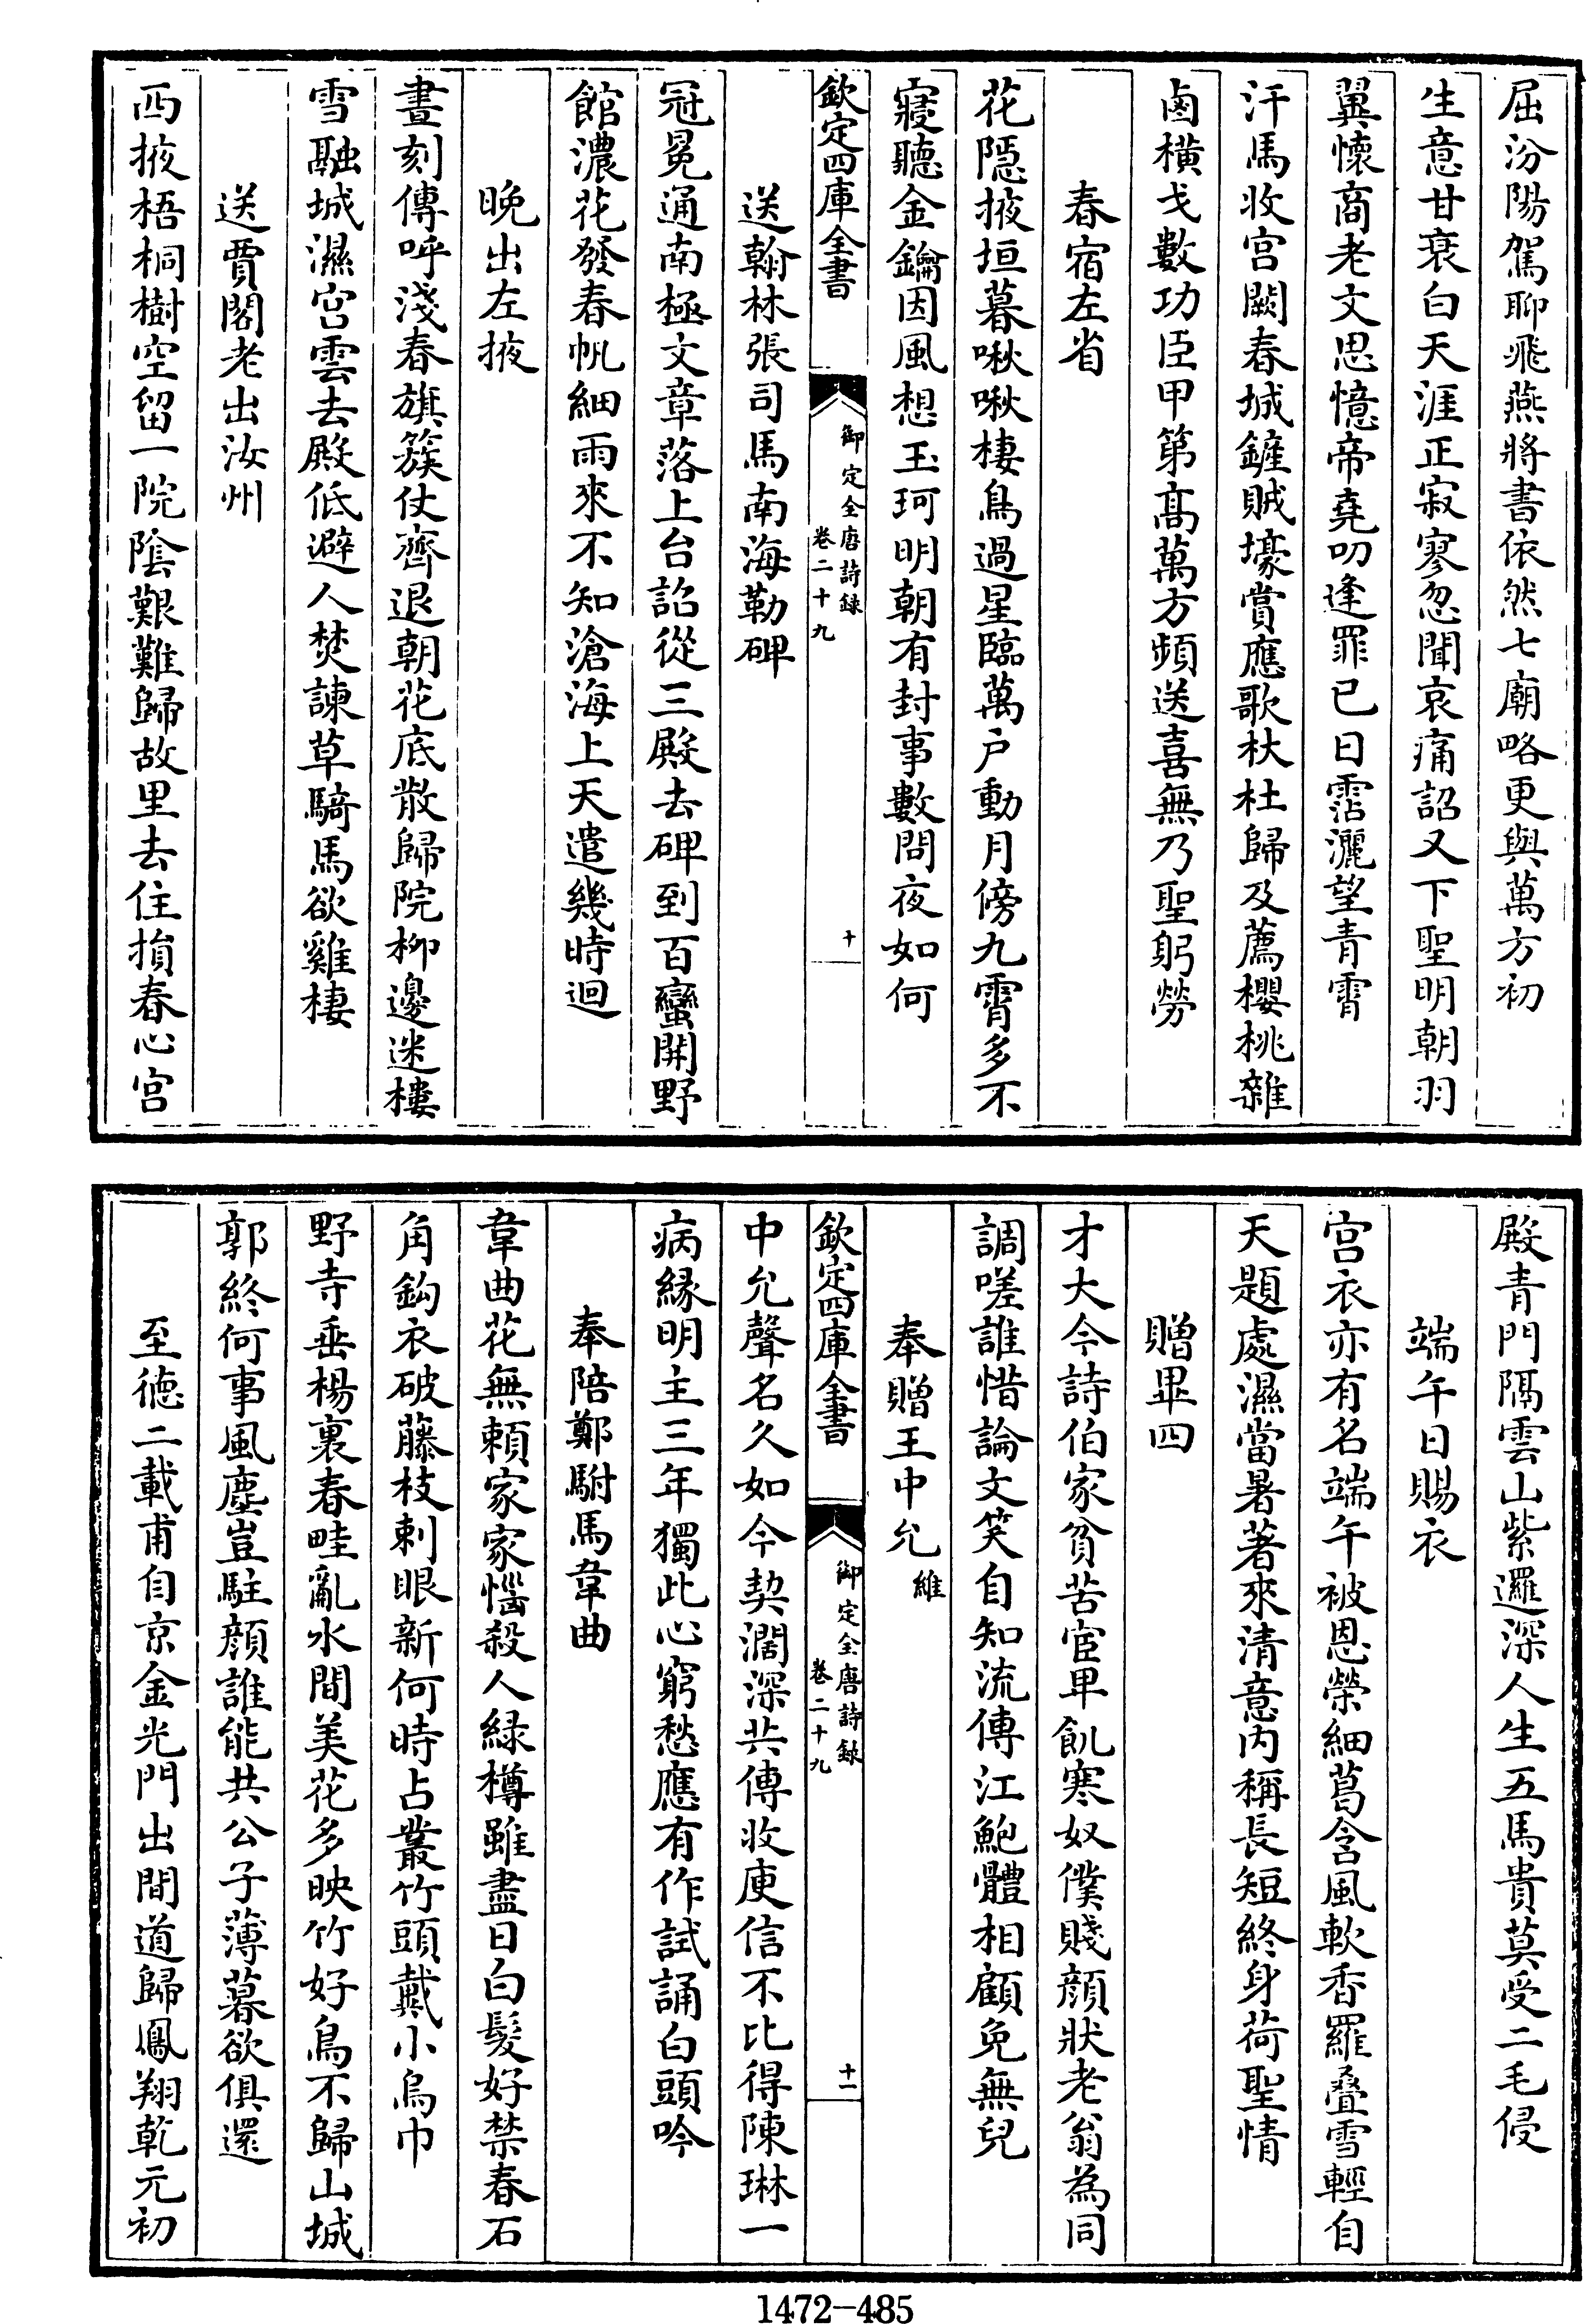 屈汾陽駕聊飛燕將書依然七廟略更與萬方初
生意甘衰白天涯正寂寥忽聞哀痛詔又下聖明朝羽
翼懷商老文思憶帝堯叨逢罪已日霑灑望青霄
汗馬收宫闕春城鏟賊壕賞應歌杕杜歸及薦櫻桃雜
鹵橫戈數功臣甲第髙萬方頻送喜無乃聖躬勞
春宿左省
花隱掖垣暮啾啾棲鳥過星臨萬户動月傍九霄多不
寢聽金鑰因風想玉珂明朝有封事數問夜如何
欽定四庫全書
御定全唐詩録
卷二十九
十
送翰林張司馬南海勒碑
冠冕通南極文章落上台詔從三殿去碑到百蠻開野
館濃花發春帆細雨來不知滄海上天遣幾時迴
晚出左掖
晝刻傳呼淺春旗簇仗齊退朝花底散歸院柳邊迷樓
雪融城濕宫雲去殿低避人焚諫草騎馬欲雞棲
送賈閣老出汝州
西掖梧桐樹空留一院陰艱難歸故里去住損春心宫
殿青門隔雲山紫邏深人生五馬貴莫受二毛侵
端午日賜衣
宫衣亦有名端午被恩榮細葛含風軟香羅疊雪輕自
天題處濕當暑著來清意内稱長短終身荷聖情
贈畢四
才大今詩伯家貧苦宦卑飢寒奴僕賤顔狀老翁為同
調嗟誰惜論文笑自知流傳江鮑體相顧免無兒
奉贈王中允維
欽定四庫全書
御定全唐詩録
卷二十九
十一
中允聲名久如今契濶深共傳收庾信不比得陳琳一
病縁明主三年獨此心窮愁應有作試誦白頭吟
奉陪鄭駙馬韋曲
韋曲花無頼家家惱殺人緑樽雖盡日白髮好禁春石
角鈎衣破藤枝刺眼新何時占叢竹頭戴小烏巾
野寺垂楊裏春畦亂水間美花多映竹好鳥不歸山城
郭終何事風塵豈駐顔誰能共公子薄暮欲俱還
至徳二載甫自京金光門出間道歸鳳翔乾元初
1472-485